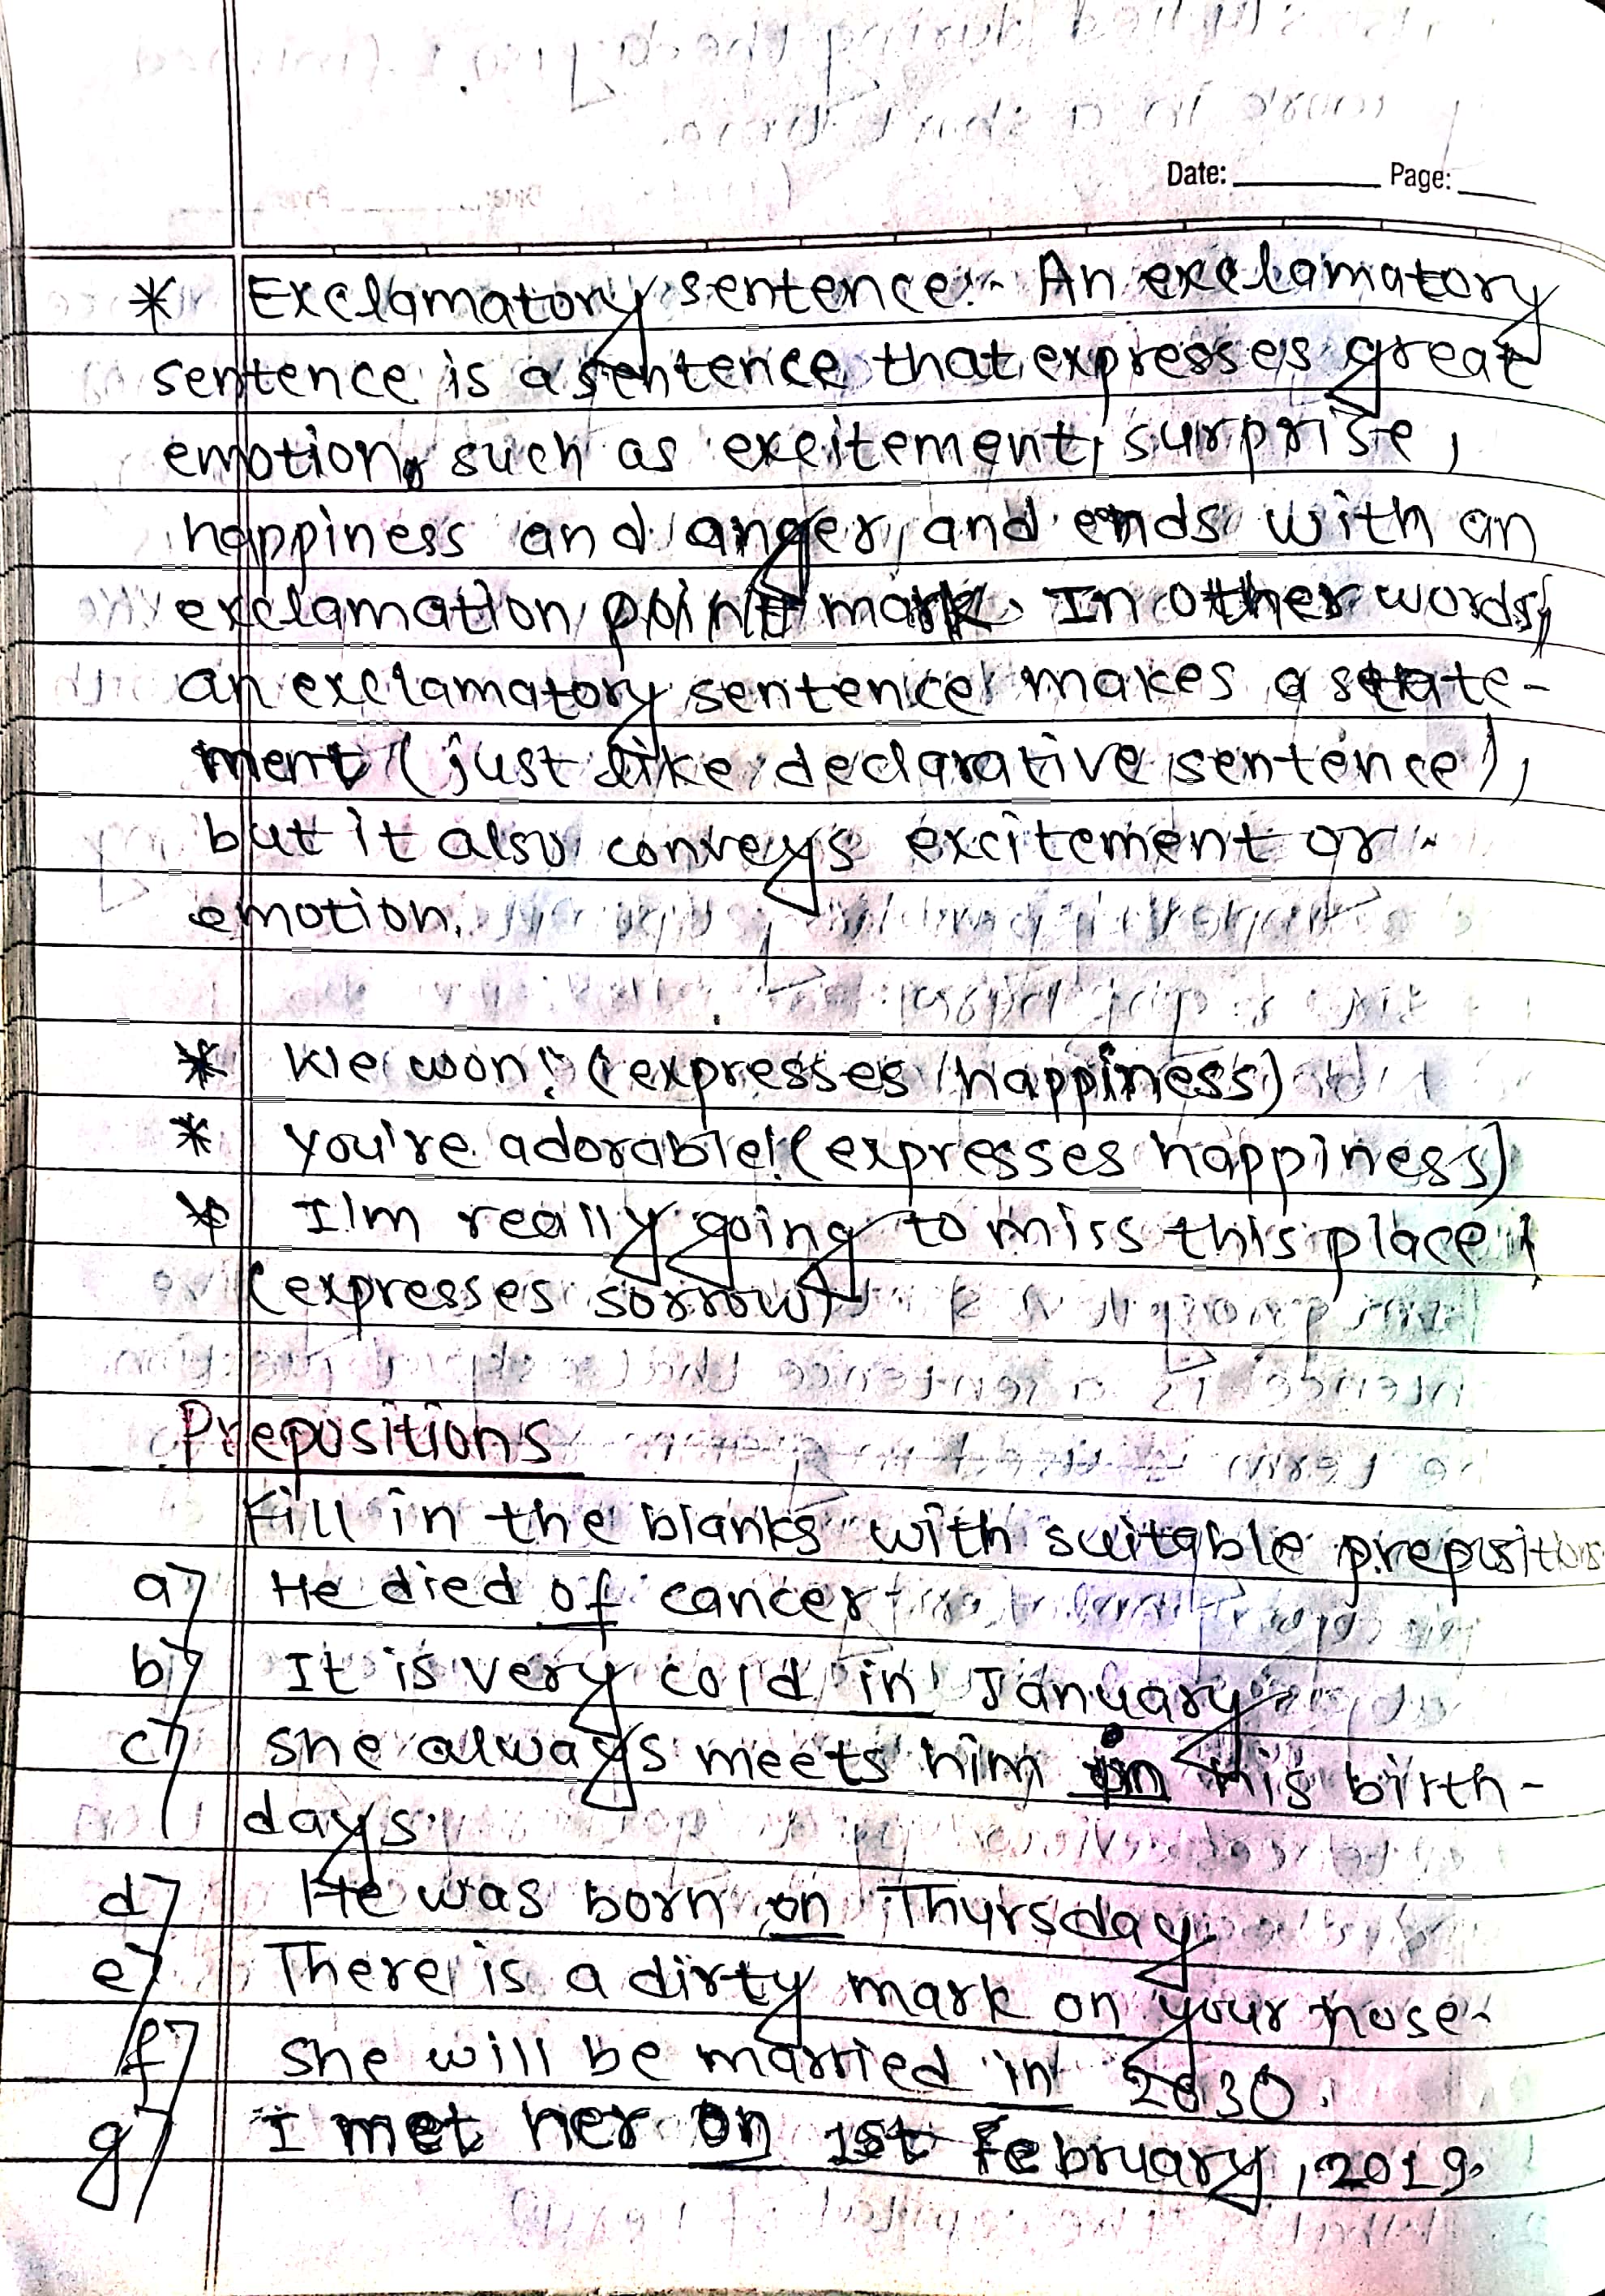 Date: Page:
* Exclamatory sentence:- An exclamatory
sentence is a sentence that expresses great
emotion, such as excitement, surprise,
happiness and anger, and ends with an
exclamation mark. In other words,
an exclamatory sentence makes a state-
ment (just like declarative sentence),
but it also conveys excitement or
emotion.
* We won! (expresses happiness)
* You're adorable! (expresses happiness)
* I'm really going to miss this place!
(expresses sorrow)
Prepositions
Fill in the blanks with suitable prepositions
a) He died of cancer
b) It is very cold in January
c) she always meets him on his birth-
days.
d) He was born on Thursday.
e) There is a dirty mark on your nose.
f) she will be married in 2030.
g) I met her on 1st February, 2019.